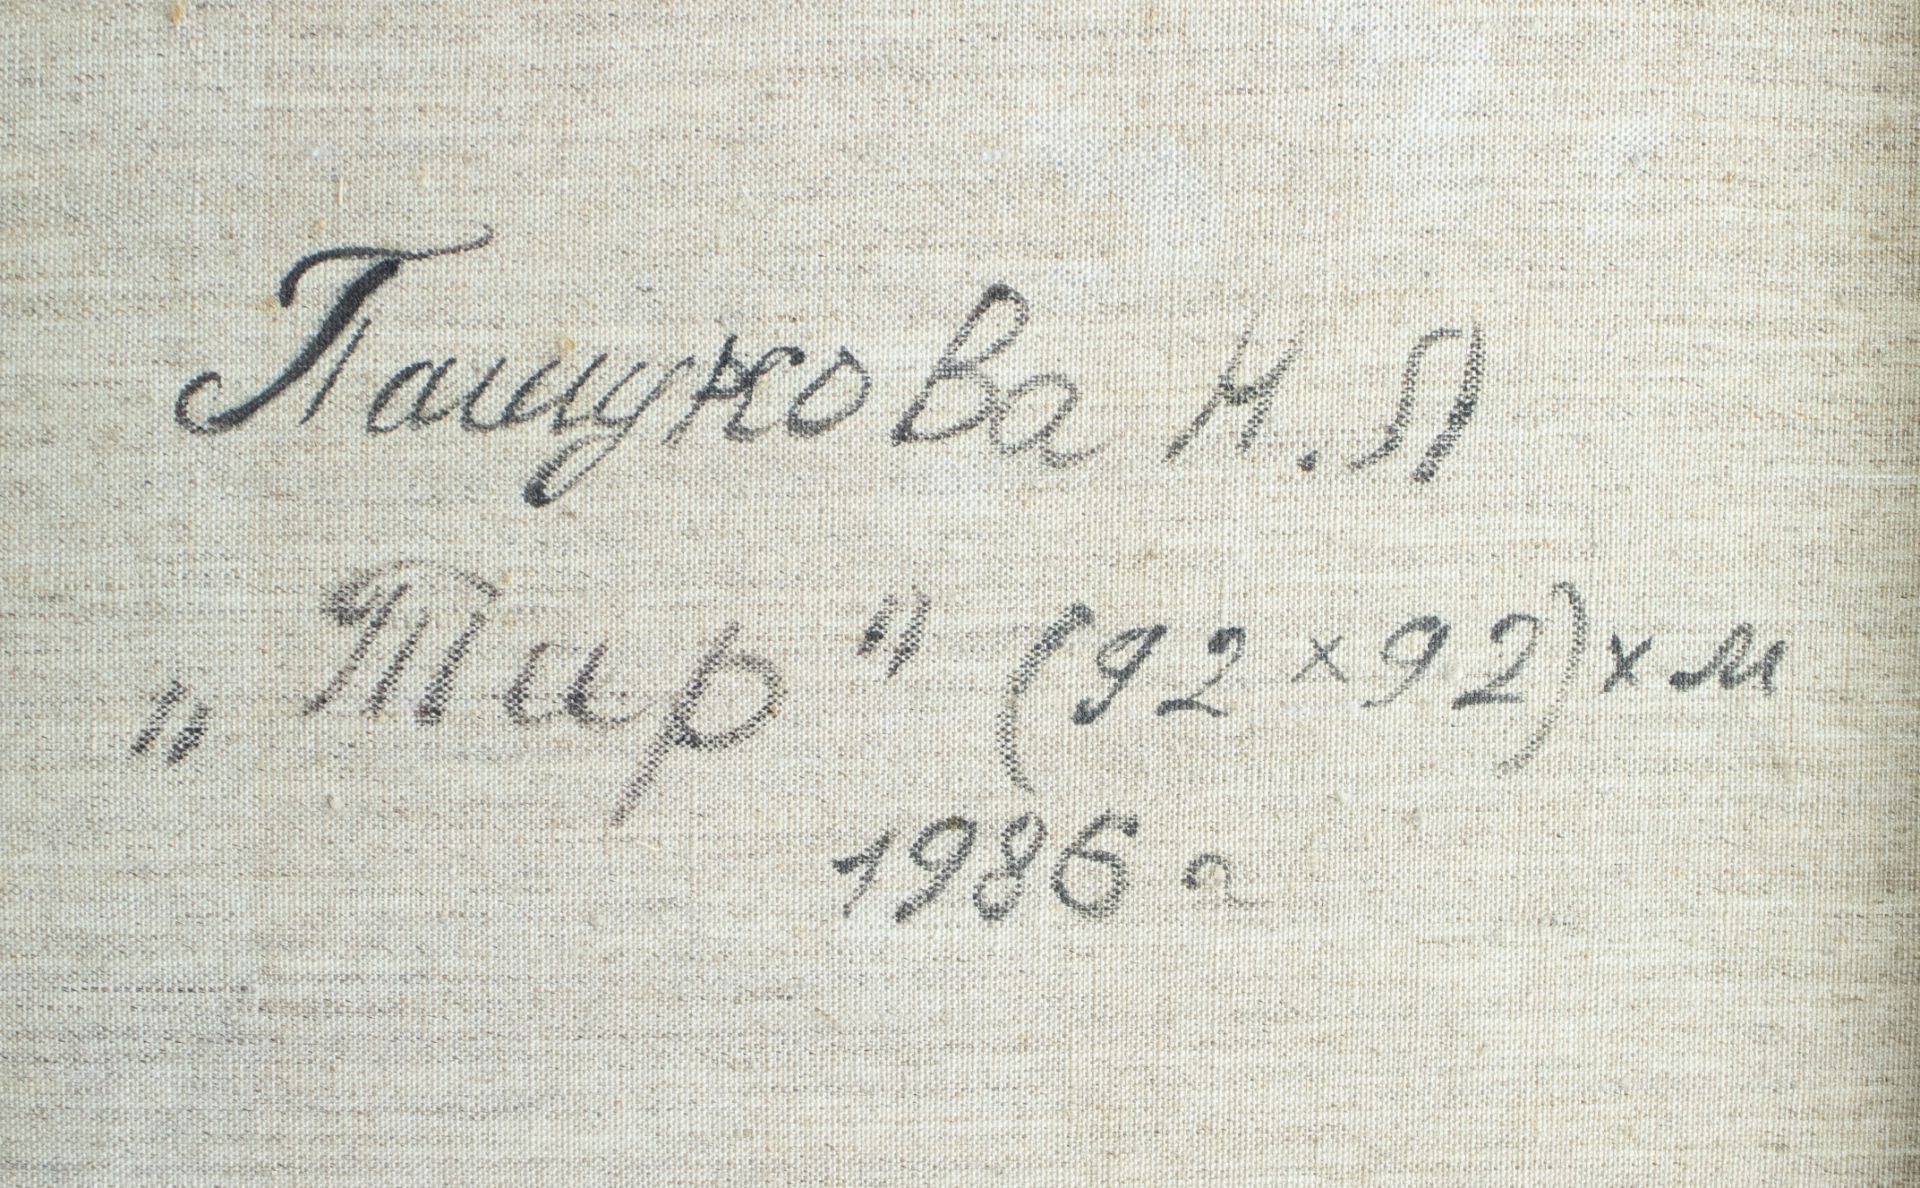 Пашукова Н.П
„Тар" (92×92) х м
1986 г